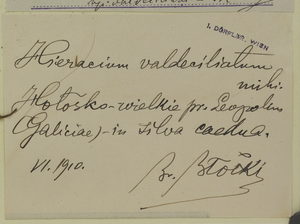 I. DÖRFLER, WIEN
Hieracium valdeciliatum
mihi.
Hołosko-wielkie pr. Leopolim
(Galiciae) - in silva caedua.
VI. 1910.
Br. Błocki